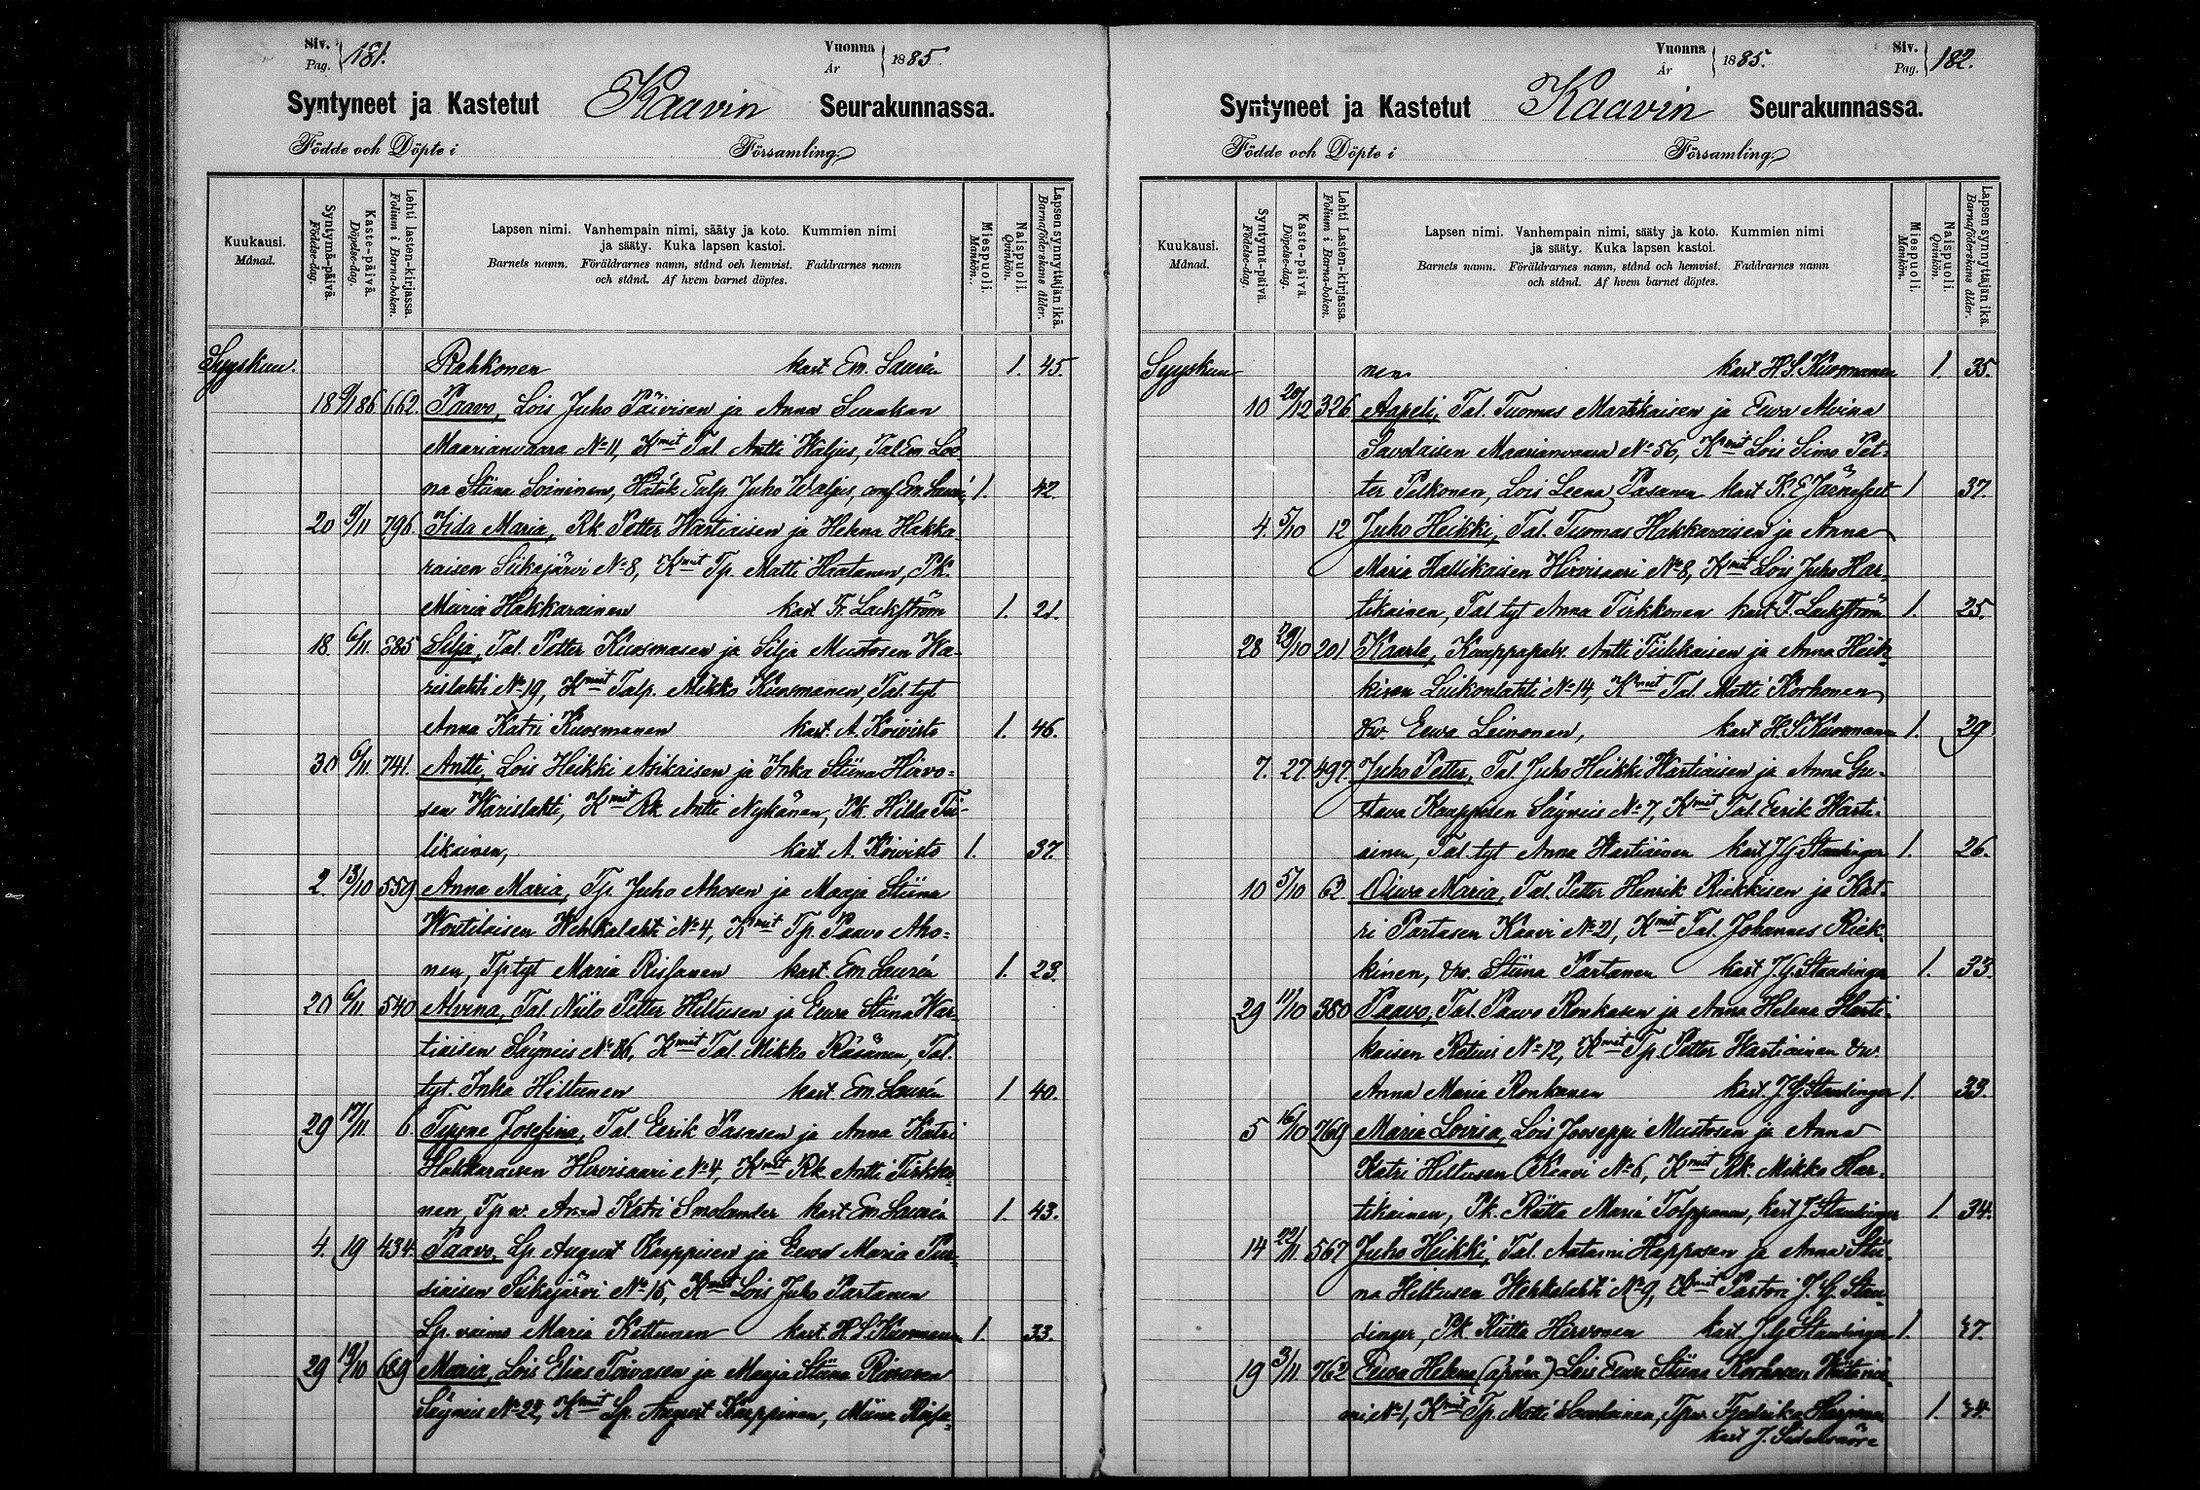 Siv. Pag. 181. Vuonna År 1885.
Syntyneet ja Kastetut Kaavin Seurakunnassa.
Födde och Döpte i Församling
Kuukausi. Månad.
Syntymä-päivä. Födelse-dag.
Kaste-päivä. Döpelse-dag.
Lehti lasten-kirjassa. Folium i Barna-boken.
Lapsen nimi. Vanhempain nimi, sääty ja koto. Kummien nimi
ja sääty. Kuka lapsen kastoi.
Barnets namn. Föräldrarnes namn, stånd och hemvist. Faddrarnes namn
och stånd. Af hvem barnet döptes.
Miespuoli. Mankön.
Naispuoli. Qvinkön.
Lapsen synnyttäjän ikä. Barnaföderskans ålder.
Syyskuu. Rahkonen kast Em. Laurén 1. 45.
18 662. Paavo, Lois Juho Päivisen ja Anna Surakan
Maarianvaara No 11, Kmit Tal Antti Waljus, Tal Em. Lee-
na Stiina Soininen, Talp. Juho Waljus, Em. Laurén 1. 42.
20 9/11 796. Iida Maria, Rk Petter Wartiaisen ja Helena Hakka-
raisen Siikajärvi No 8, Kmit Tp. Matti Haatanen, Pk.
Maria Hakkarainen kast Fr. Lackström 1. 21.
18 6/11 685 Silja, Tal. Petter Kuosmasen ja Silja Mustosen Wa-
rislahti No 19, Kmit Talp. Mikko Kuosmanen, Tal. tyt
Anna Katri Kuosmanen kast. A. Koivisto 1. 46.
30 6/11 741. Antti, Lois Heikki Asikaisen ja Inka Stiina Hirvo-
sen Warislahti, Kmit Rk Antti Nykänen, Pk. Hilda Tii-
likainen, kast. A. Koivisto 1. 37.
2. 13/10 559 Anna Maria, Tp. Juho Ahosen ja Maaja Stiina
Woutilaisen Wehkalahti No 4, Kmit Tp. Paavo Aho-
nen, Tp tyt Maria Rissanen kast. Em. Laurén 1. 23.
20 6/11 540 Alvina, Tal. Niilo Petter Hiltusen ja Eewa Stiina War-
tiaisen Säyneis No 86, Kmit Tal. Mikko Räsänen, Tal.
tyt. Inka Hiltunen kast Em. Laurén 1 40.
29 17/11 6 Tyyne Josefina, Tal. Eerik Pasasen ja Anna Katri
Hakkaraisen Hirvisaari No 4, Kmit Rk. Antti Tirkko-
nen, Tp w. Anna Katri Smolander kast Em Laurén 1. 43.
4. 19 434. Paavo, Lp August Karppisen ja Eewa Maria Pur-
siaisen Siikajärvi No 15, Kmit Lois Juho Partanen
Lp. vaimo Maria Kettunen kast. H. S. Kuosmanen 1. 33.
29 19/10 689 Maria, Lois Elias Toivasen ja Maaja Stiina Rissasen
Säyneis No 22, Kmit Lp. August Karppinen, Miina Rissa-
Vuonna År 1885. Siv. Pag. 182.
Syntyneet ja Kastetut Kaavin Seurakunnassa.
Födde och Döpte i Församling
Kuukausi. Månad.
Syntymä-päivä. Födelse-dag.
Kaste-päivä. Döpelse-dag.
Lehti Lasten-kirjassa. Folium i Barna-boken.
Lapsen nimi. Vanhempain nimi, sääty ja koto. Kummien nimi
ja sääty. Kuka lapsen kastoi.
Barnets namn. Föräldrarnes namn, stånd och hemvist. Faddrarnes namn
och stånd. Af hvem barnet döptes.
Miespuoli. Mankön.
Naispuoli. Qvinkön.
Lapsen synnyttäjän ikä. Barnaföderskans ålder.
Syyskuu nen kast H. S. Kuosmanen 1. 35.
10 20/12 326 Aapeli, Tal. Tuomas Martikaisen ja Eewa Alvina
Savolaisen Maarianvaara No 56, Kmit Lois Simo Pet-
ter Pelkonen, Lois Leena Pasanen kast K. E. Järnefelt 1 37.
4. 5/10 12 Juho Heikki, Tal. Tuomas Hakkaraisen ja Anna
Maria Hallikaisen Hirvisaari No 8, Kmit Lois Juho Har-
tikainen, Tal tyt Anna Tirkkonen kast F. Lackström 1. 25.
28 29/10 201 Kaarle, Kauppapalv. Antti Tiilikaisen ja Anna Heik-
kisen Luikonlahti No 14, Kmit Tal. Matti Korhonen
Eewa Leinonen, kast H. S. Kuosmanen 1. 29.
7. 27. 497 Juho Petter, Tal. Juho Heikki Wartiaisen ja Anna Gu-
stava Kauppisen Säyneis No 7, Kmit Tal. Eerik Warti-
ainen, Tal tyt Anna Wartiainen kast J. G. Staudinger 1. 26.
10 5/10 62 Oiwa Maria, Tal. Petter Henrik Riekkisen ja Kat-
ri Partasen Kaavi No 21, Kmit Tal. Johannes Riek-
kinen, Stiina Partanen kast J. G. Staudinger 1. 33.
29 11/10 380 Paavo, Tal. Paavo Ronkasen ja Anna Helena Harti-
kaisen Retuis No 12, Kmit Tp. Petter Hartiainen
Anna Maria Ronkanen kast. J. G. Staudinger 1. 33.
5 16/10 769 Maria Lovisa, Lois Jooseppi Mustosen ja Anna
Katri Hiltusen Kaavi No 6, Kmit Rk. Mikko Har-
tikainen, Pk. Riitta Maria Tolppanen, kast J. Staudinger 1. 34.
14 22/11 567 Juho Heikki, Tal. Aatami Happosen ja Anna Stii-
na Hiltusen Wehkalahti No 9, Kmit Pastori J. G. Stau-
dinger, Pk Riitta Hirvonen kast. J. G. Staudinger 1. 47.
19 3/11 762 Eewa Helena (äpärä) Lois Eewa Stiina Korhosen
No 1, Kmit Tp. Matti Savolainen, Tpw. Fredrika 1.
kast J.